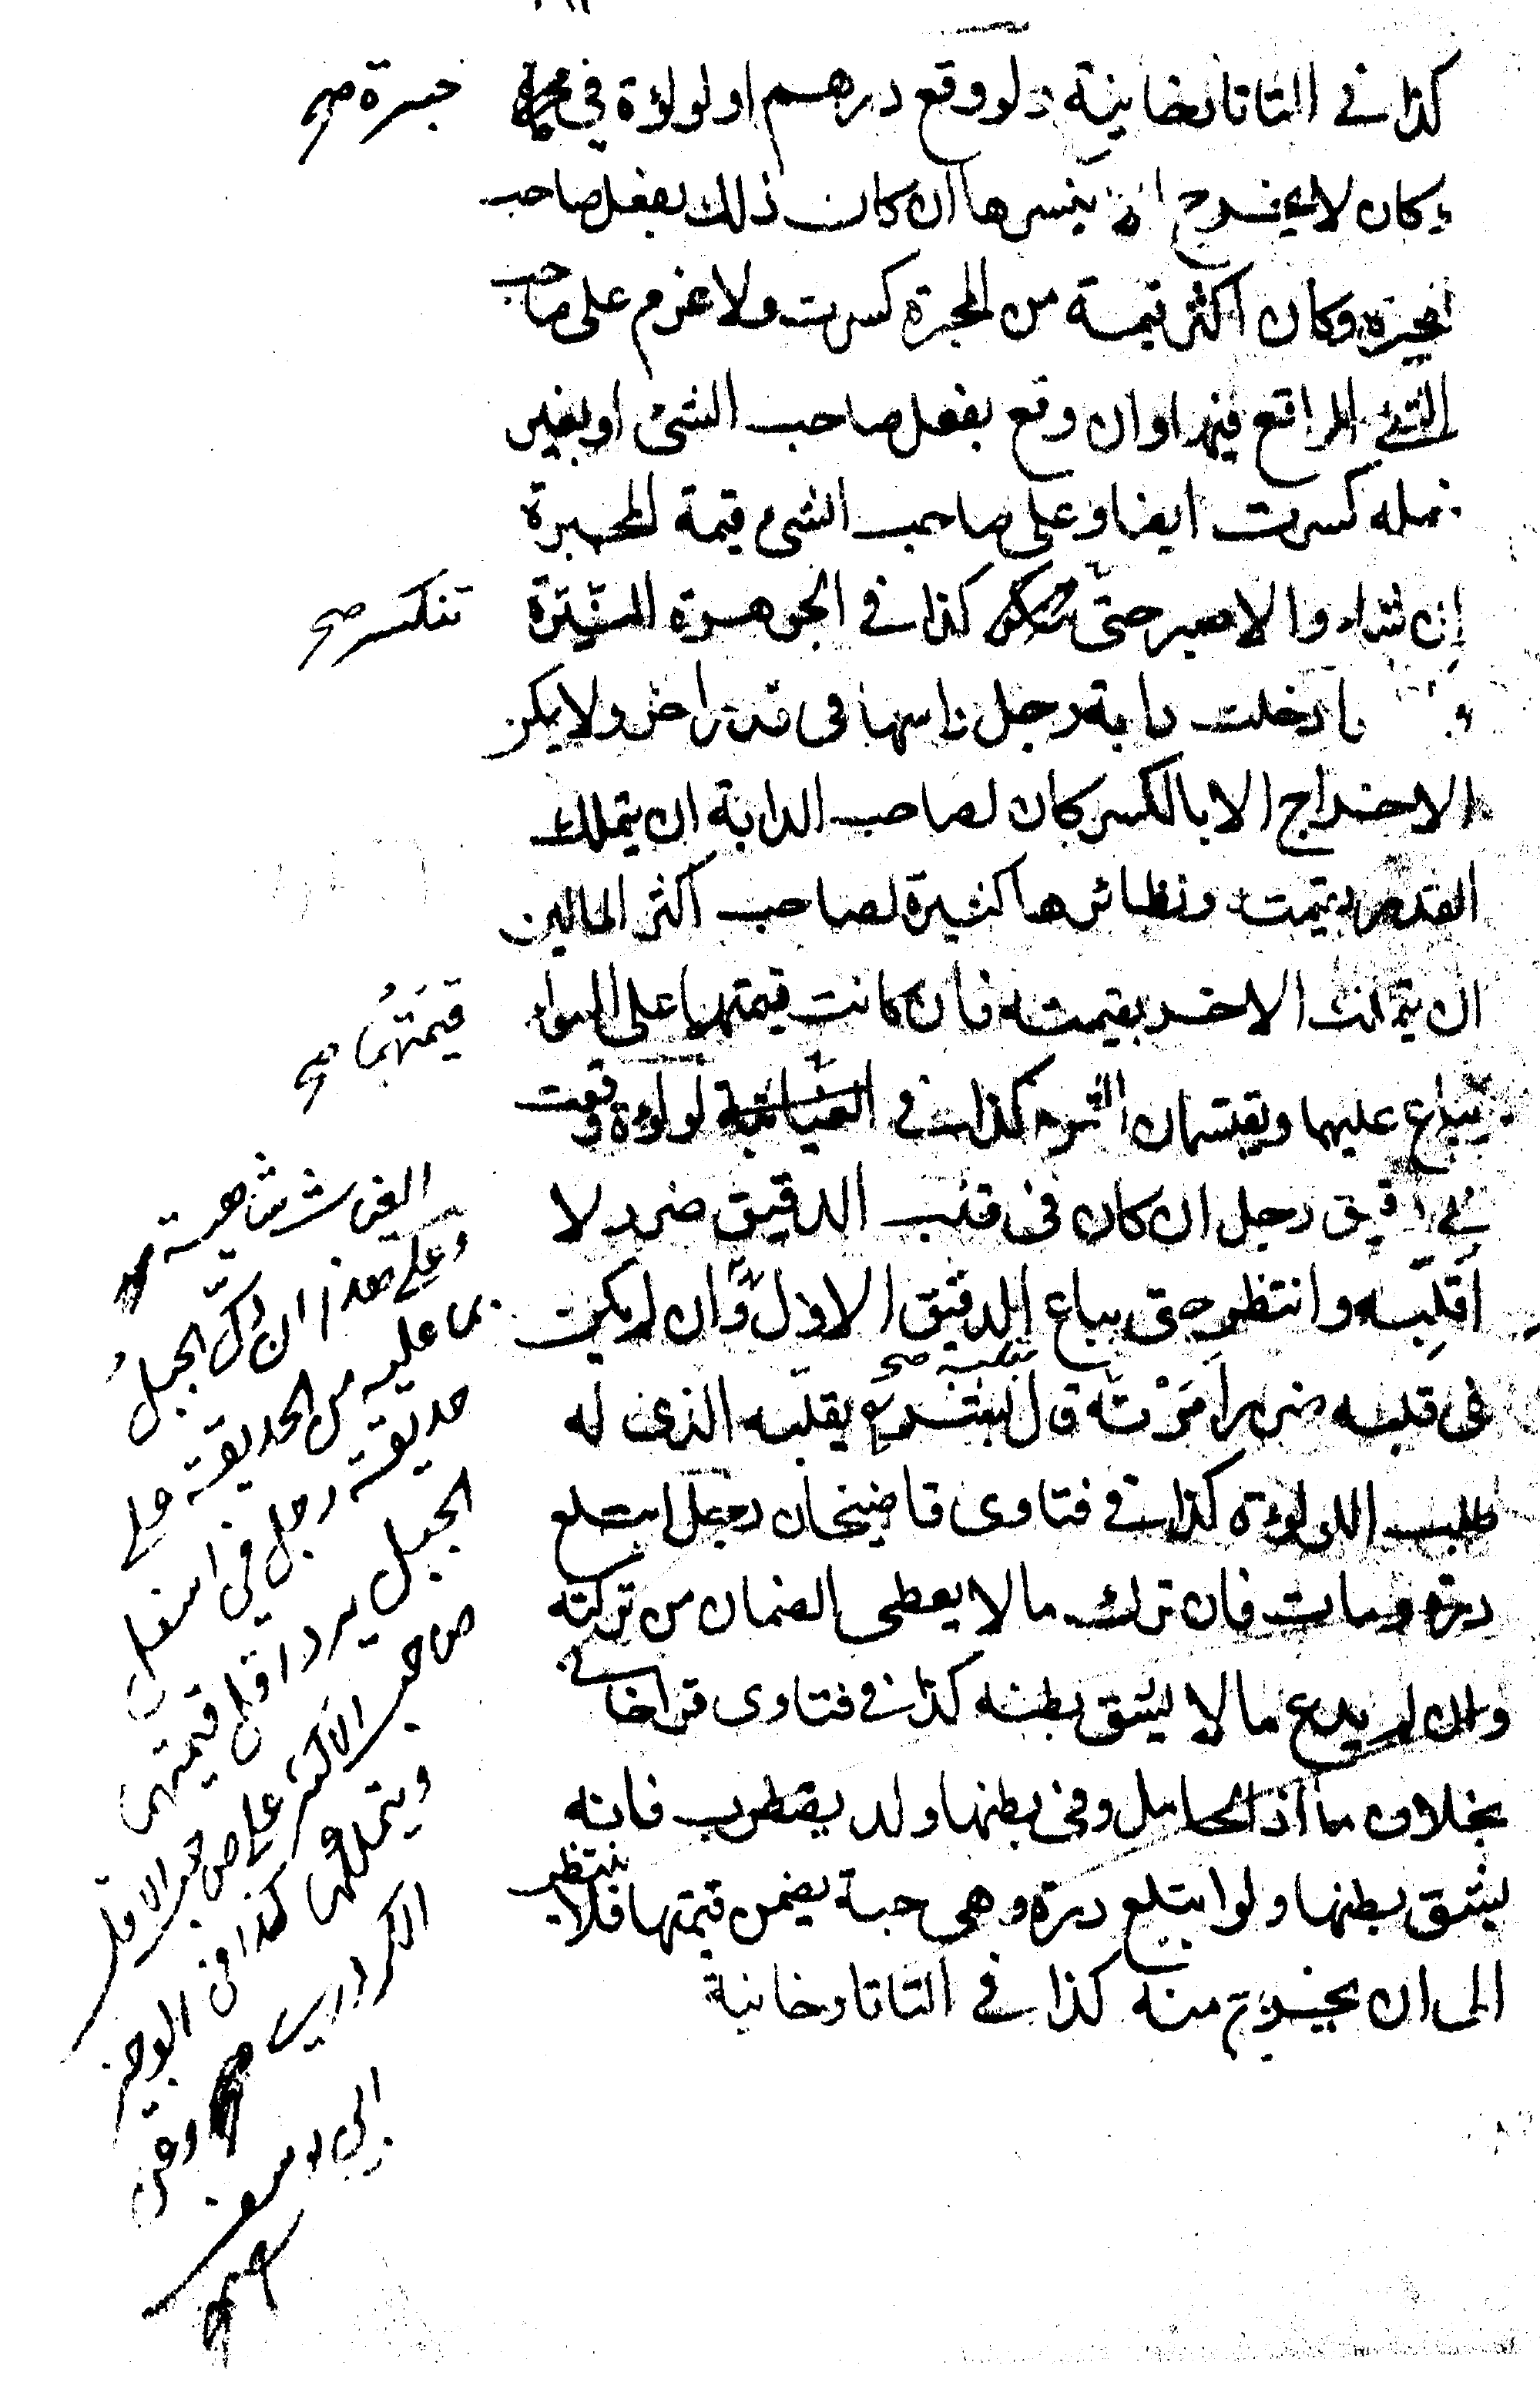 كذا في التاتارخانية ولو وقع درهم او لولوة في محبرة
وكان لا يخرج الا بكسرها ان كان ذلك بفعل صاحب
المحبرة وكان اكثر قيمة من المحبرة كسرت ولا غرم على صاحب
الشئ الواقع فيها وان وقع بفعل صاحب الشئ او بغير
فعله كسرت ايضا وعلى صاحب الشئ قيمة المحبرة
ان شاء والا صبر حتى كذا في الجوهرة النيرة
ادخلت دابة رجل راسها في قدر اخر ولا يمكن
الاخراج الا بالكسر كان لصاحب الدابة ان يتملك
القدر بقيمته ونظائرها كثيرة لصاحب اكثر المالين
ان يتملك الاخر بقيمته فان كانت قيمتهما على السواء
يباع عليهما ويقتسمان الثمن كذا في الغياثية لولوة وقعت
في دقيق رجل ان كان في قلب الدقيق ضرر لا
اقلبه وانتظر حتى يباع الدقيق الاول وان لم يكن
في قلبه ضرر امرته بقلبه قال بشر يقلبه الذي له
طلب اللولوة كذا في فتاوى قاضيخان رجل ابتلع
درة ومات فان ترك مالا يعطى الضمان من تركته
وان لم يدع مالا لا يشق بطنه كذا في فتاوى قراخاني
بخلاف ما اذا الحامل وفي بطنها ولد يضطرب فانه
يشق بطنها ولو ابتلع درة وهي حية يضمن قيمتها فلا ينتظر
الى ان يخرج منه كذا في التاتارخانية
حبرة صح
تنكسر صح
قيمتهما صح
وعلى هذا ان الجبل
بما عليه من الحديقة على
حديقة رجل في اسفل
الجبل يرد اقل قيمتهما
صاحب الاكثر على صاحب الاقل
ويتملكها كذا في الوجيز
الكردري